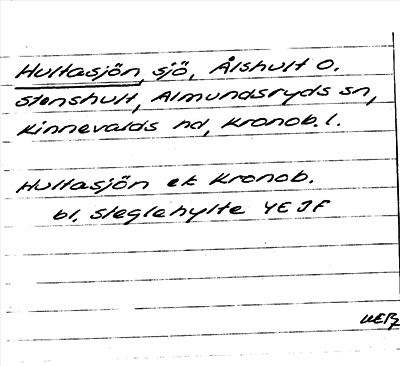 Hultasjön, sjö, Ålshult O.
Stenshult, Almundsryds sn,
Kinnevalds hd, Kronob. l.
Hultasjön ek Kronob.
bl. Sleglehylte 4E JF